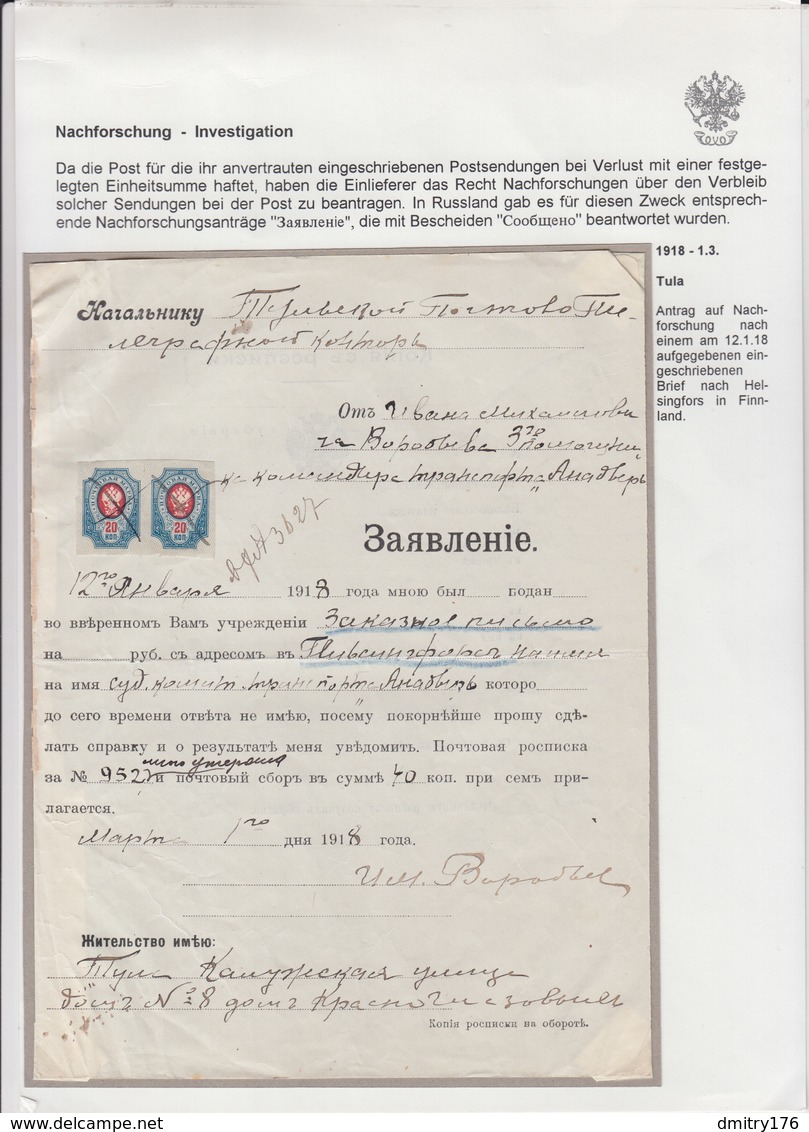 Nachforschung - Investigation
Da die Post für die ihr anvertrauten eingeschriebenen Postsendungen bei Verlust mit einer festge-
legten Einheitsumme haftet, haben die Einlieferer das Recht Nachforschungen über den Verbleib
solcher Sendungen bei der Post zu beantragen. In Russland gab es für diesen Zweck entsprech-
ende Nachforschungsanträge "Заявленіе", die mit Bescheiden "Сообщено" beantwortet wurden.
1918 - 1.3.
Tula
Antrag auf Nach-
forschung nach
einem am 12.1.18
aufgegebenen ein-
geschriebenen
Brief nach Hel-
singfors in Finn-
land.
Начальнику Тульской Почтово Те-
леграфной Конторы
Отъ Ивана Михайлови
ча Воробьева 3го помощни
ка командира транспорта "Анадырь
20 КОП 20 КОП
3627
Заявленіе.
12го Января 1918 года мною былъ поданъ
во ввѣренномъ Вамъ учрежденіи Заказное письмо
на руб. съ адресомъ въ Гельсингфорсъ
на имя суд. комит. транспорта "Анадырь которо
до сего времени отвѣта не имѣю, посему покорнѣйше прошу сдѣ-
лать справку и о результатѣ меня увѣдомить. Почтовая росписка
мною утеряна
за № 952 и почтовый сборъ въ суммѣ 40 коп. при семъ при-
лагается.
Марта 1го дня 1918 года.
И.М. Воробьев
Жительство имѣю:
Тула Калужская улица
домъ № 8 домъ
Копія росписки на оборотѣ.
dmitry176.delcampe.net
dmitry176